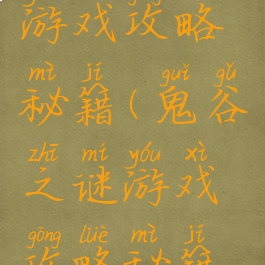 游戏攻略
mì jí guǐ gǔ
秘籍(鬼谷
zhī mí yóu xì
之谜游戏
gōng lüè mì jí
攻略秘籍